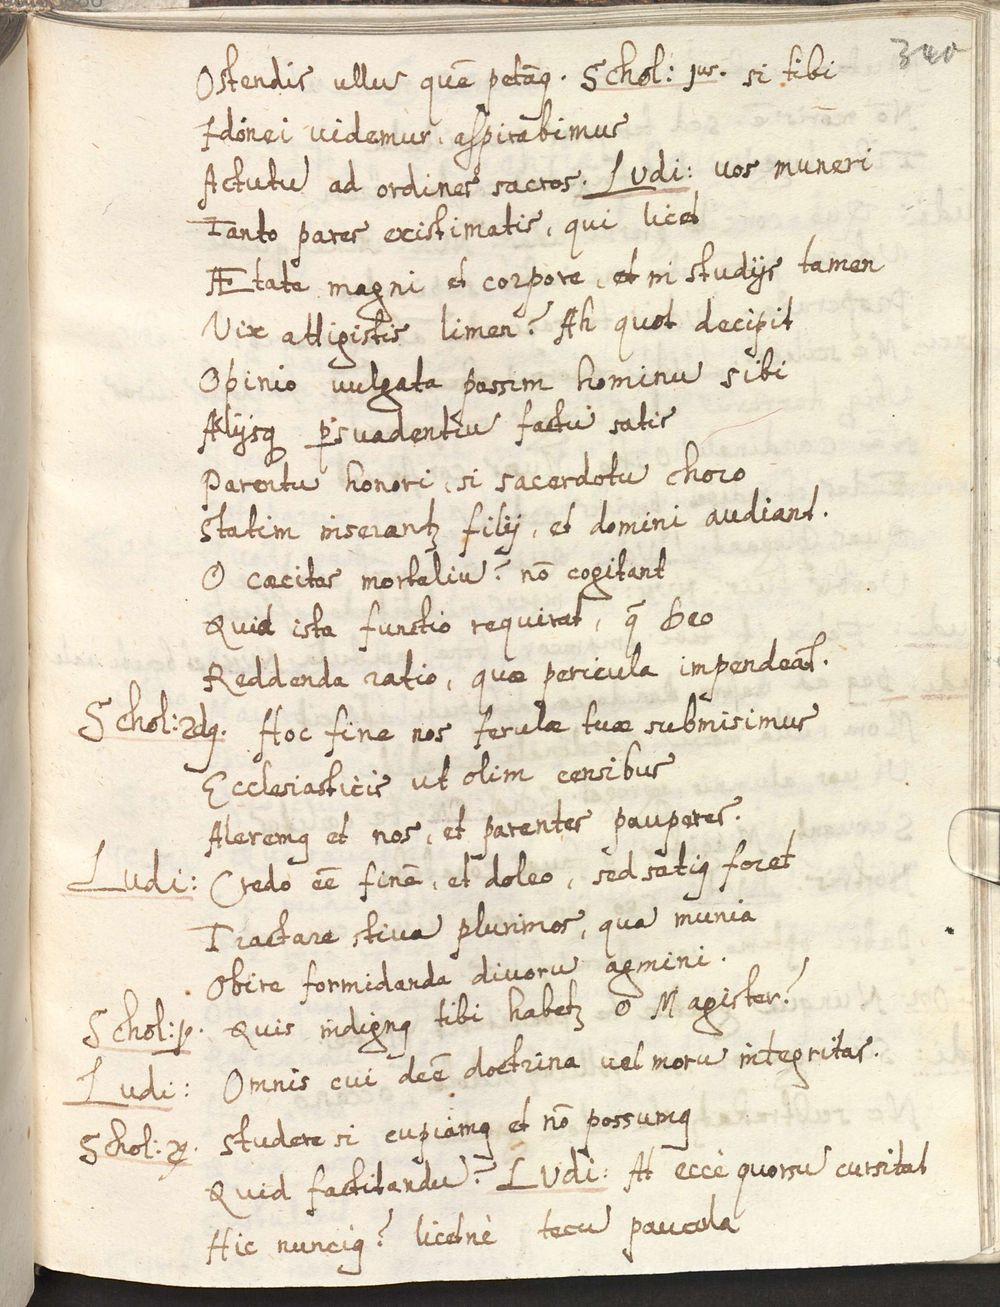 340
Ostendis ullus quē petāq. Schol: 1us. si tibi
Idonei videmur, aspirabimus
Actutū ad ordines sacros. Ludi: vos muneri
Tanto pares existimatis, qui licet
Ætate magni et corpore, et in studijs tamen
Vix attigistis limen? Ah quot decipit
Opinio vulgata passim hominū sibi
Alijsq persuadentiū factū satis
Parentū honori, si sacerdotū choro
Statim inserantz filij, et domini audiant.
O cæcitas mortaliū? nō cogitant
Quid ista functio requirat, q̄ Deo
Reddenda ratio, quæ pericula impendeāt.
Schol: 2dq. Hoc fine nos ferulæ tuæ submisimus
Ecclesiasticis ut olim censibus
Aleremq et nos, et parentes pauperes.
Ludi: Credo eē finē, et doleo, sed satiq foret
Tractare stiva plurimos, qua munia
Obire formidanda divorū agmini.
Schol: p. Quis indignq tibi habetz ô Magister?
Ludi: Omnis cui deē doctrina vel morū integritas.
Schol: 2q. Studere si cupiamq et nō possumq
Quid factitandū? Ludi: At eccè quorsū cursitat
Hic nunciq? licetnè tecū paucula